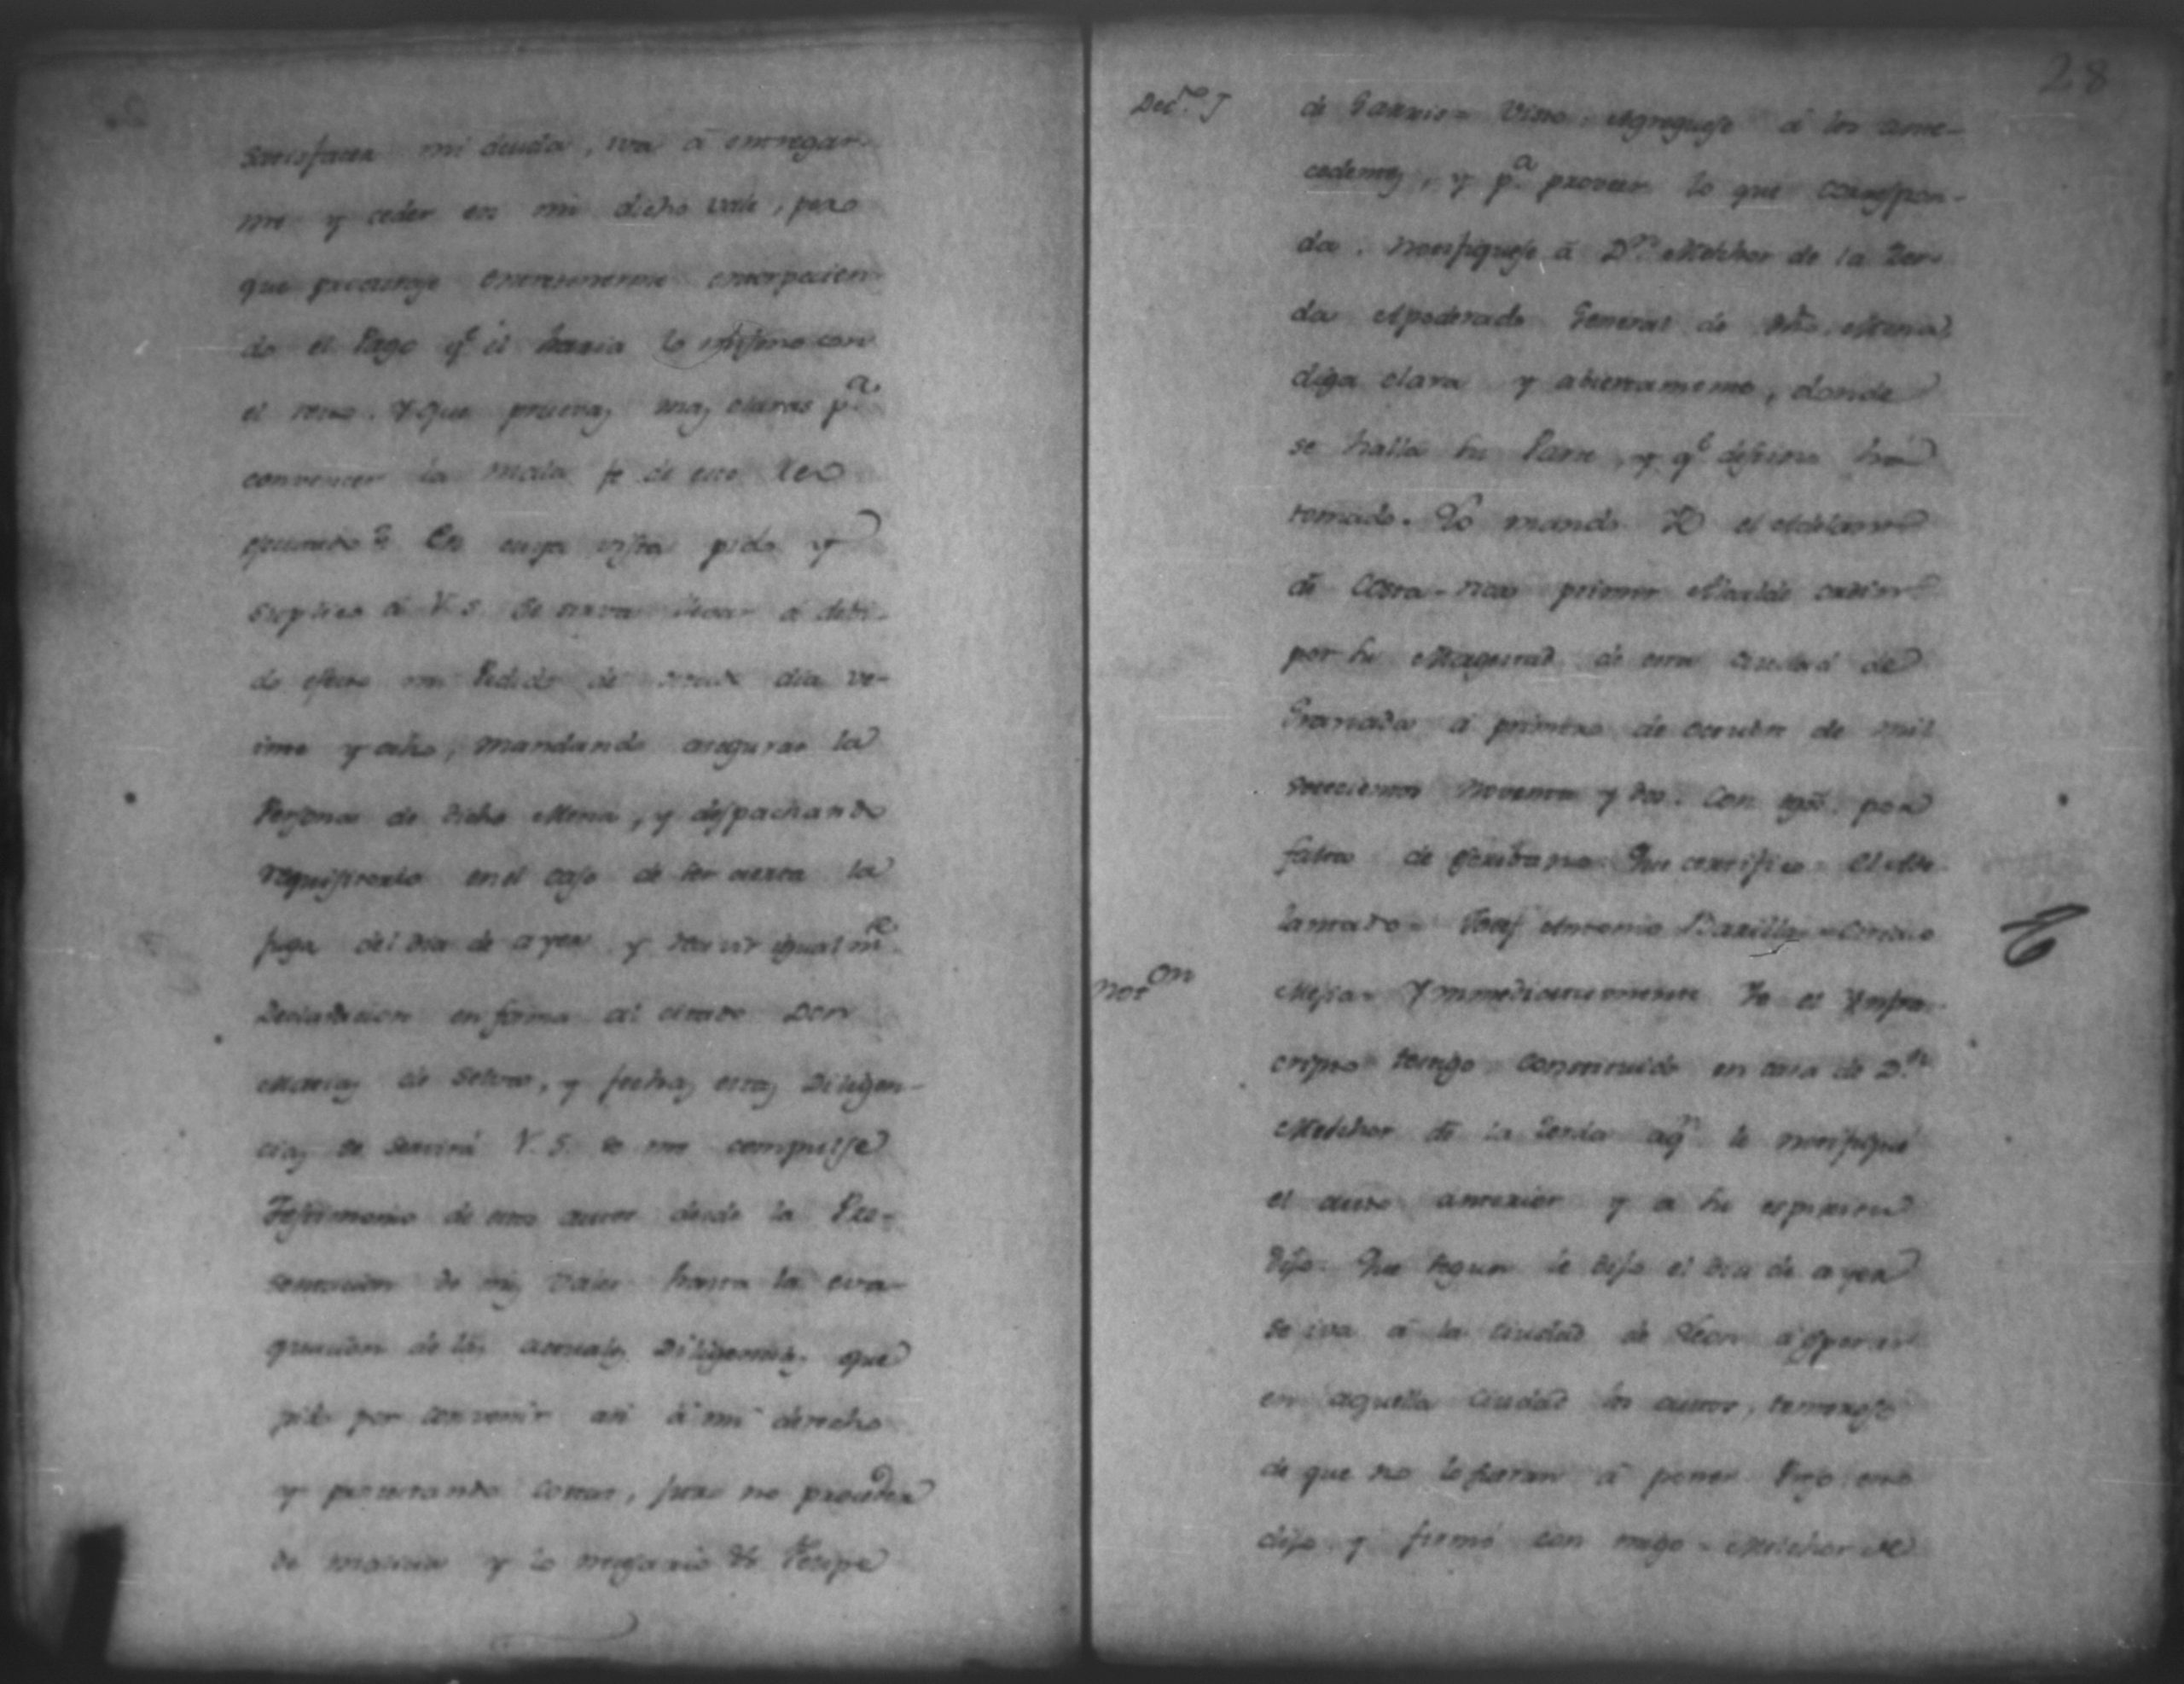 satisfacer mi deuda, iva â entregar-
me y ceder en mi dicho vale, pero
que procurase
do el Pago q.e el haria lo mismo con
el resto. Y que pruevas mas claras p.a
convencer la mala fe de este Reo
En cuya vista pido y
suplico â V. S. se sirva llevar â devi-
do efecto mi Pedido de dia ve-
inte y ocho, mandando asegurar la
Persona de dicho Mena, y despachando
requisitorio en el caso de ser cierta la
fuga del dia de ayer y recivir igualm.te
Declaracion en forma al citado Don
Matias de Selva, y fechas estas Diligen-
cias se servirá V. S. se me compulse
Testimonio de estos autos desde la Pre-
sentacion de mis vales hasta la eva-
quacion de las actuales Diligencias que
pido por convenir asi â mi derecho
y protestando costas, juro no proceder
de malicia y lo necesario D.n Felipe
28
Dec.to J
de Garrir= Visto. Agreguese â los ante-
cedentes, y p.a proveer lo que correspon-
da. Notifiquese â D.n Melchor de la Cer-
da Apoderado General de dho Mena
diga clara y abiertamente, donde
se halla su Parte, y q.e destino há
tomado. Yo mando Yo el Adelantd.o
de Costa-rica primer Alcalde ordin.o
por su Magestad de esta Ciudad de
Granada â primero de octubre de mil
setecientos noventa y dos. Con tgos. por
falta de Escribano Que certifico= El Ade-
lantado= Josef Antonio Barillas=
Not.on
Mejia= Ynmediatamente Yo el Ynfra-
cripto tengo constituido en casa de D.n
Melchor de la Cerda aq.n le notifiqué
el auto anterior y a su
Dijo: Que segun le dijo el dia de ayer
se iva â la Ciudad de Leon â esperar
en aquella Ciudad los autos, temeroso
de que no lo fueran â poner Preso. esto
dijo y firmó con migo= Melchor de